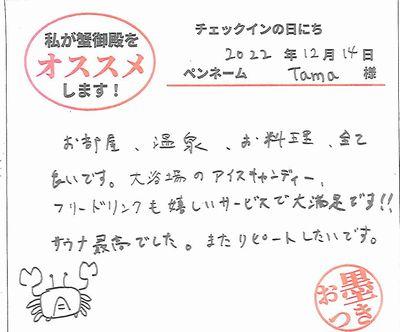 私が蟹御殿を
オススメ
します！
チェックインの日にち
2022 年 12月 14日
ペンネーム Tama 様
お部屋、温泉、お料理、全て
良いです。大浴場のアイスキャンディー、
フリードリンクも嬉しいサービスで大満足です!!
サウナ最高でした。またリピートしたいです。
お墨つき